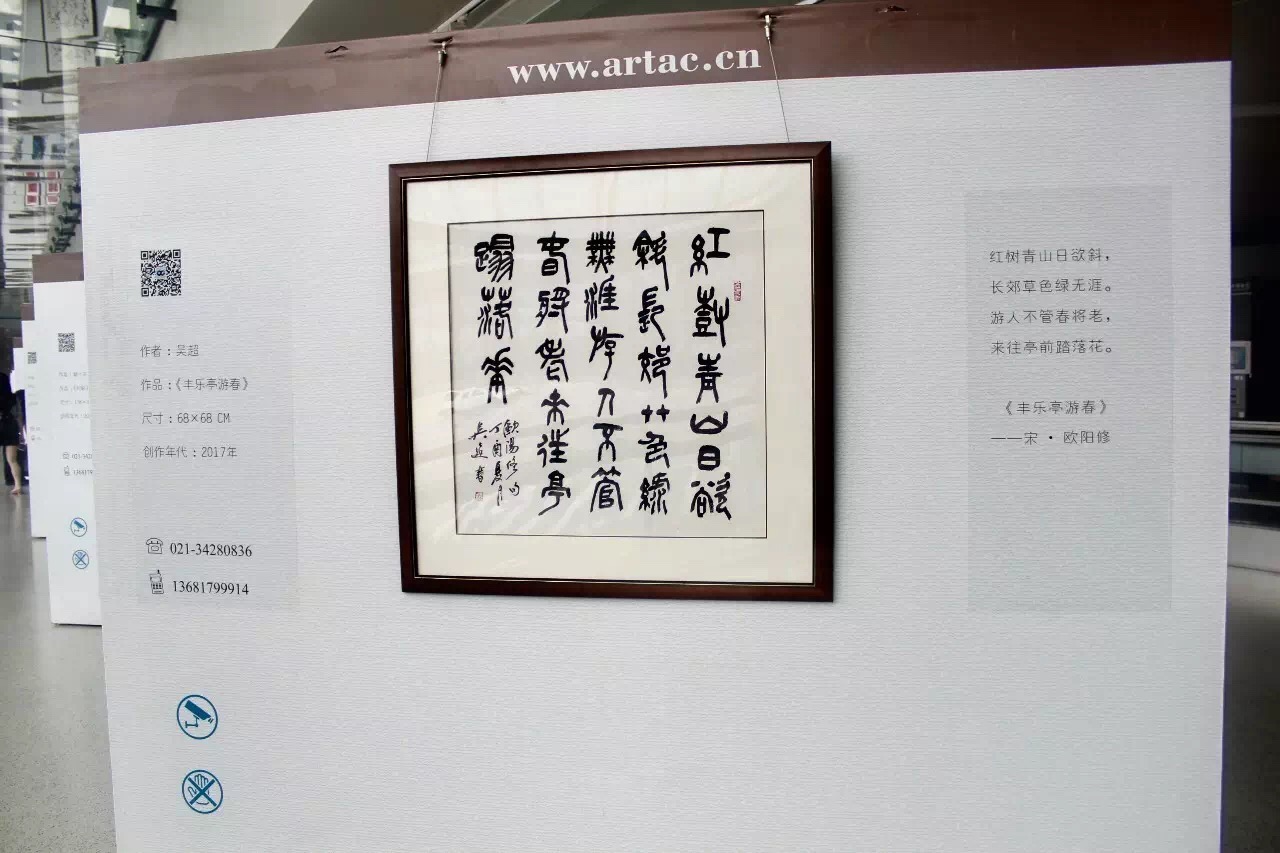 www.artac.cn
作者：吴超
作品：《丰乐亭游春》
尺寸：68×68 CM
创作年代：2017年
021-34280836
13681799914
紅樹青山日欲
斜長郊草色綠
無涯游人不管
春將老來往亭
蹋落花
歐陽修句
丁酉夏月
吴超書
红树青山日欲斜，
长郊草色绿无涯。
游人不管春将老，
来往亭前踏落花。
《丰乐亭游春》
——宋 · 欧阳修